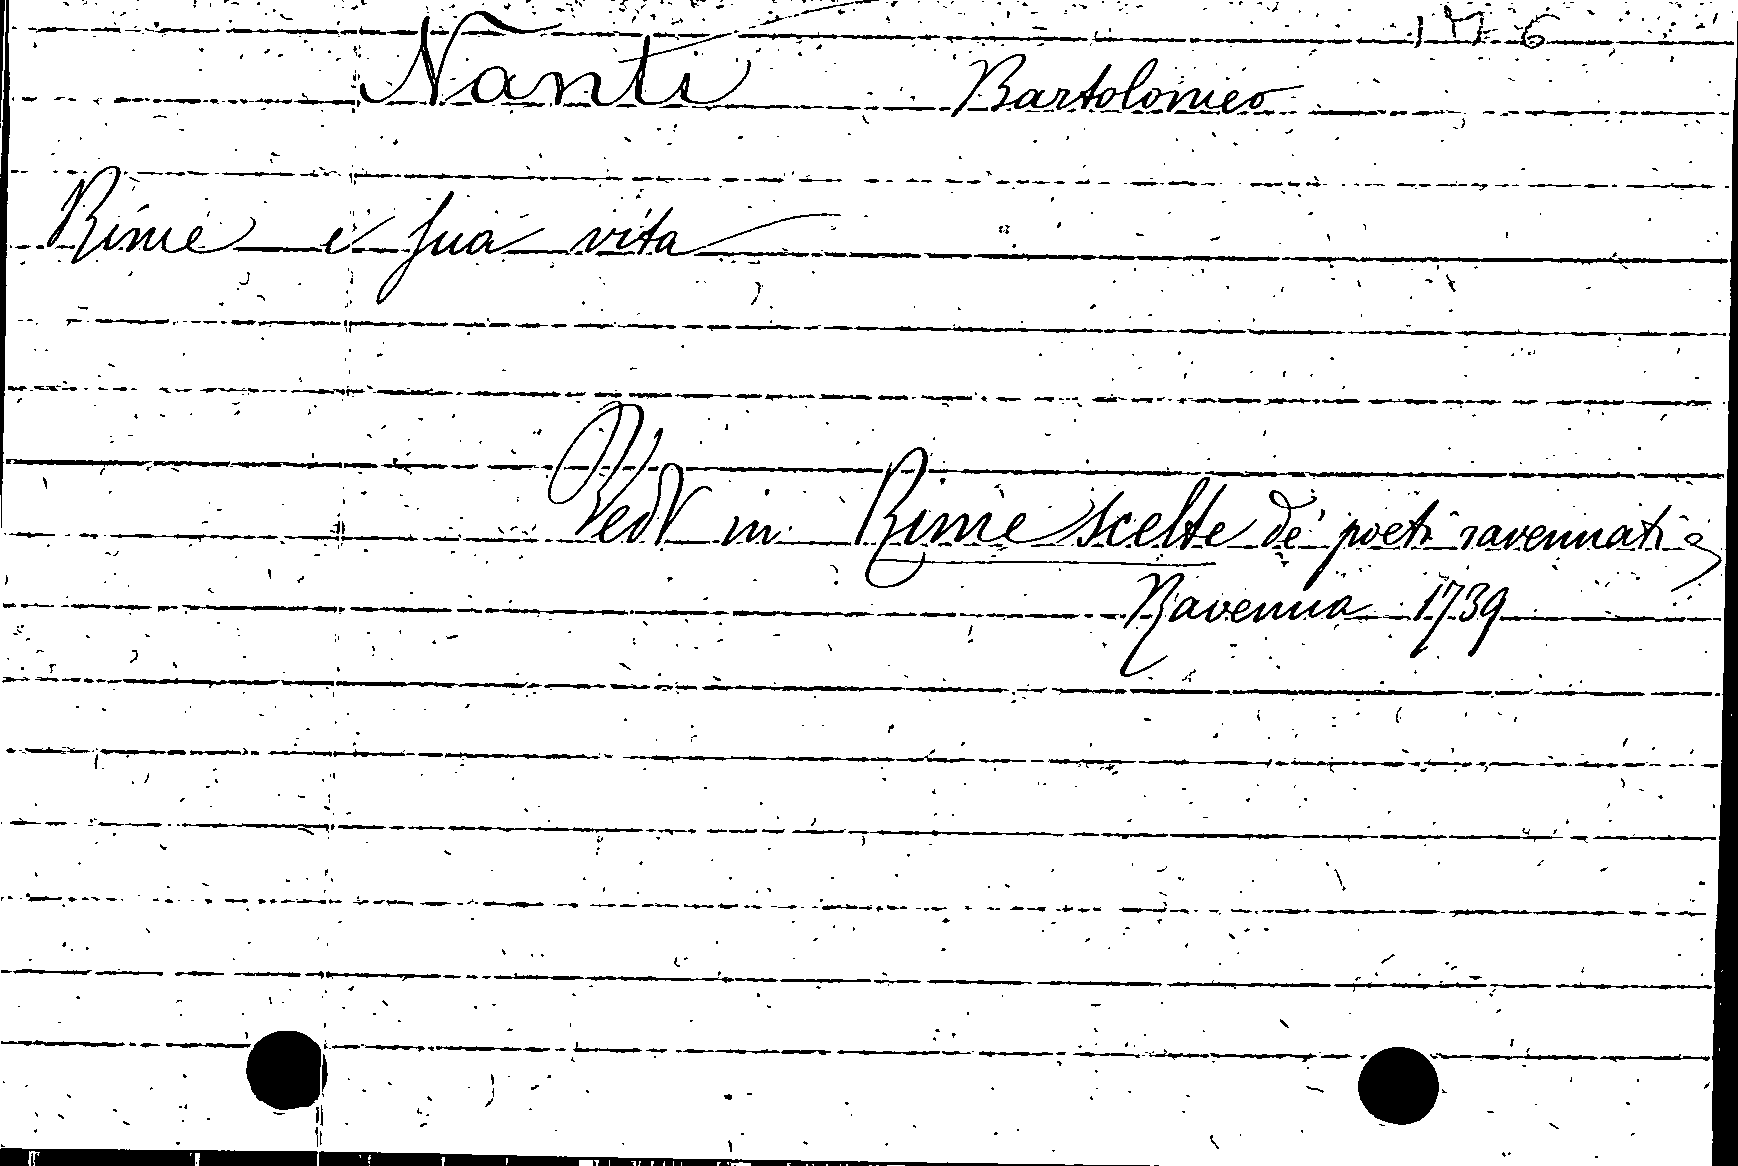 Nanti Bartolomeo
Rime e sua vita
Vedi in Rime scelte de' poeti ravennati
Ravenna 1739